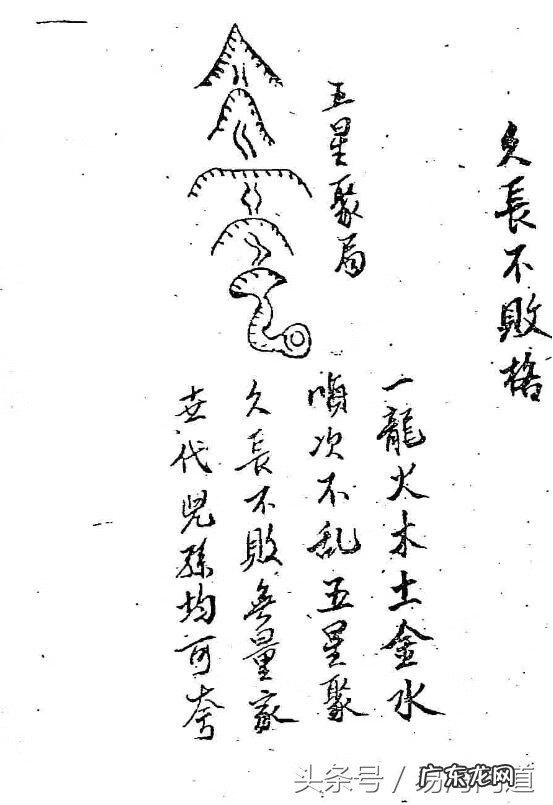 久長不敗格
五星聚局
一龍火木土金水
次不乱五星聚
久長不敗無量家
世代児孫均可夸
头条号 / 易
广东龙网
道